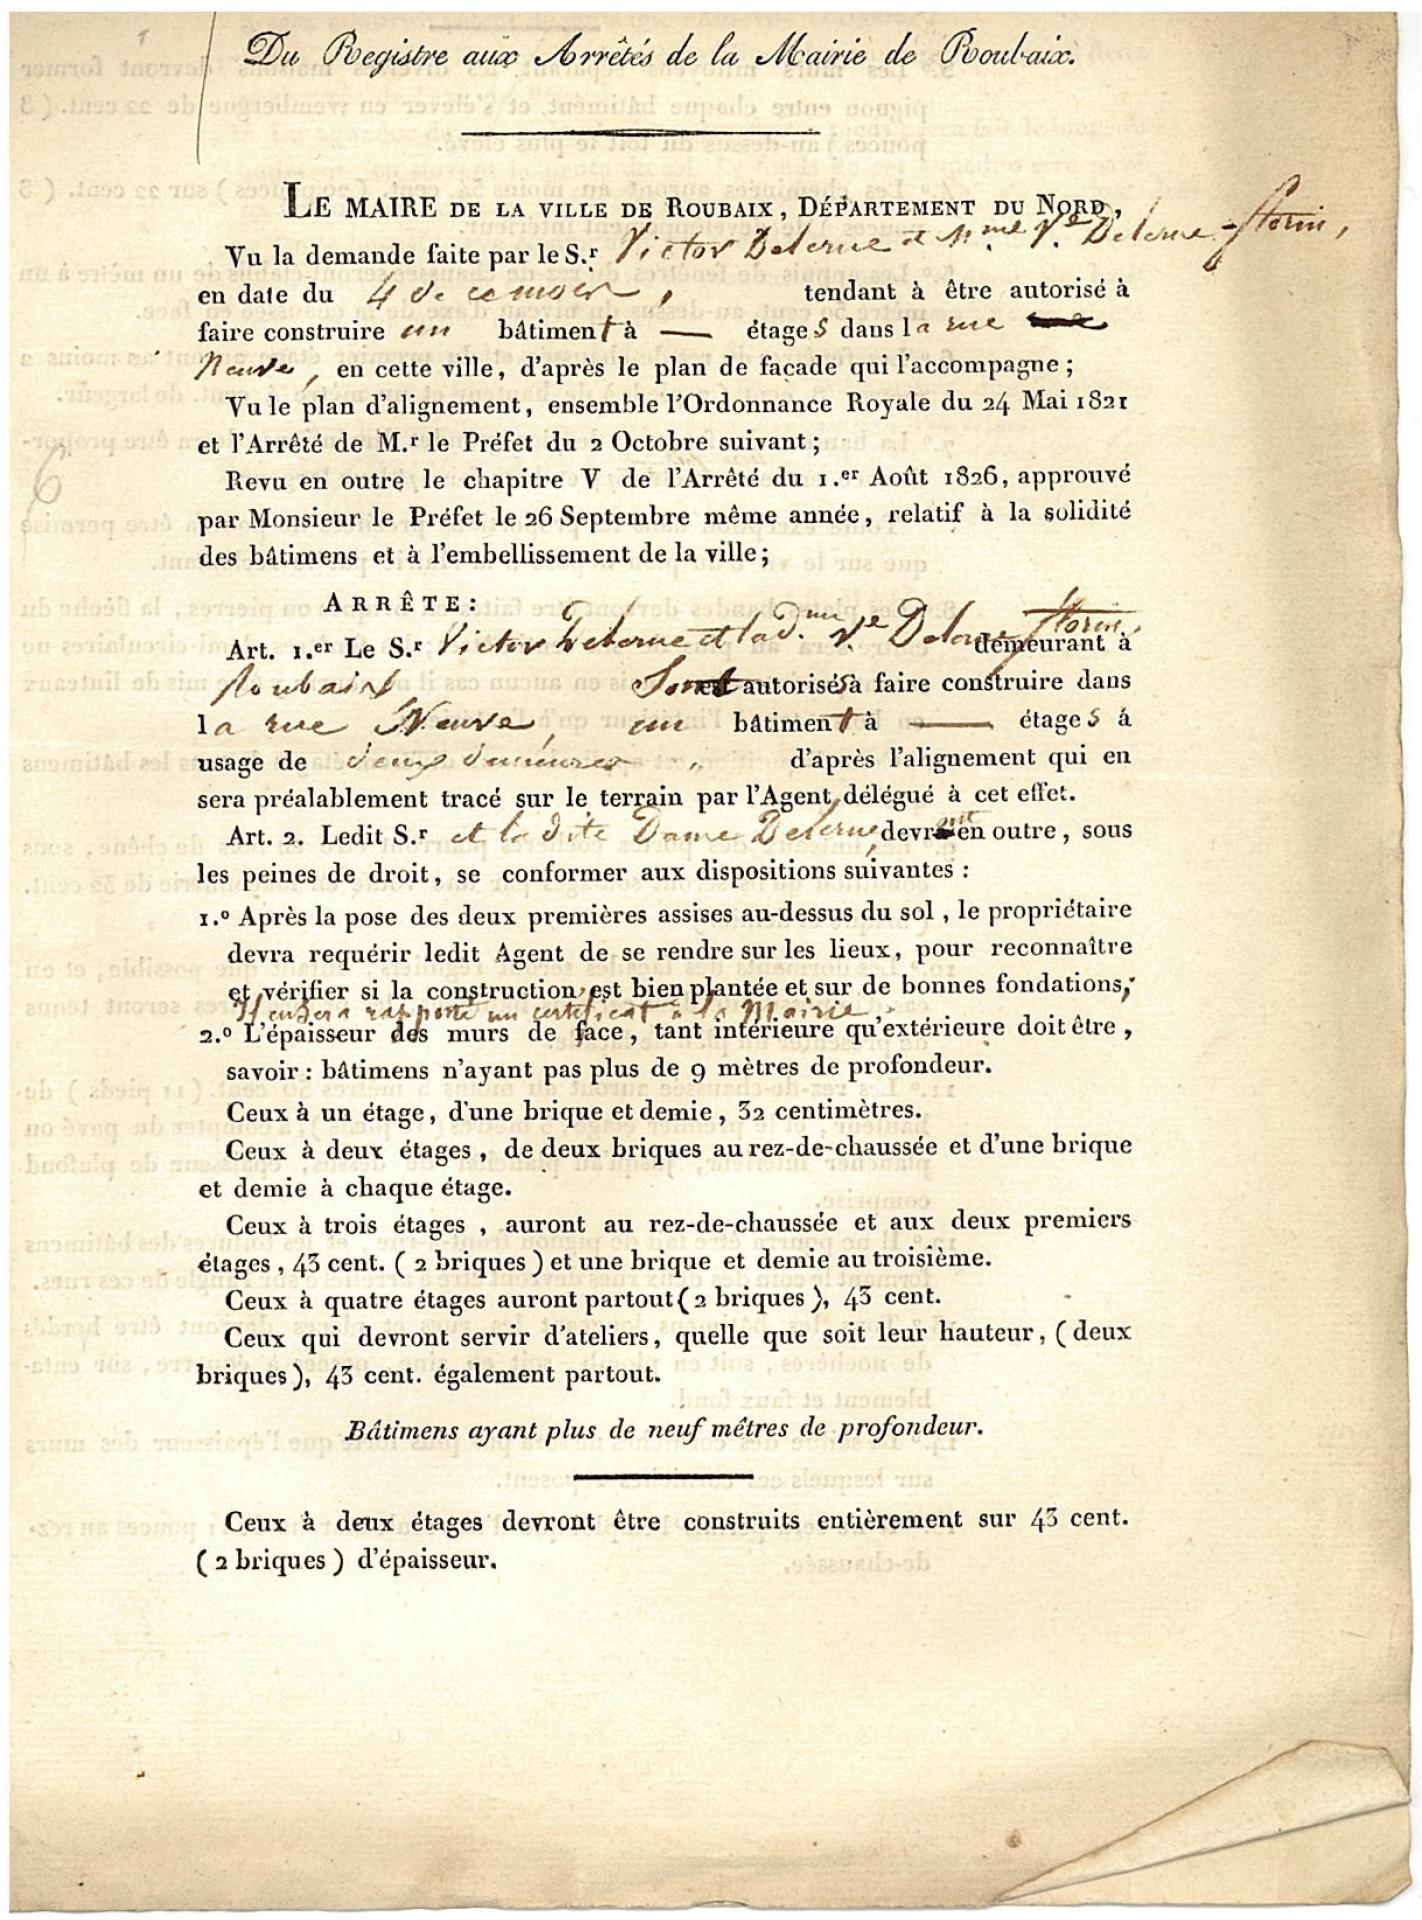 Du Registre aux Arrêtés de la Mairie de Roubaix.
LE MAIRE DE LA VILLE DE ROUBAIX, DÉPARTEMENT DU NORD,
Vu la demande faite par le S.r Victor Delerue et M.me V.e Delerue-florin,
en date du 4 de ce mois, tendant à être autorisé à
faire construire un bâtiment à — étages dans la rue
Neuve, en cette ville, d'après le plan de façade qui l'accompagne;
Vu le plan d'alignement, ensemble l'Ordonnance Royale du 24 Mai 1821
et l'Arrêté de M.r le Préfet du 2 Octobre suivant;
Revu en outre le chapitre V de l'Arrêté du 1.er Août 1826, approuvé
par Monsieur le Préfet le 26 Septembre même année, relatif à la solidité
des bâtimens et à l'embellissement de la ville;
6
ARRÊTE:
Art. 1.er Le S.r Victor Delerue et la d.me V.e Delerue florin, demeurant à
Roubaix Sont autorisés à faire construire dans
la rue Neuve, un bâtiment à — étages à
usage de deux demeures d'après l'alignement qui en
sera préalablement tracé sur le terrain par l'Agent délégué à cet effet.
Art. 2. Ledit S.r et la dite Dame Delerue, devront en outre, sous
les peines de droit, se conformer aux dispositions suivantes :
1.º Après la pose des deux premières assises au-dessus du sol, le propriétaire
devra requérir ledit Agent de se rendre sur les lieux, pour reconnaître
et vérifier si la construction est bien plantée et sur de bonnes fondations;
Il en sera rapporté un certificat à la Mairie.
2.º L'épaisseur des murs de face, tant intérieure qu'extérieure doit être,
savoir : bâtimens n'ayant pas plus de 9 mètres de profondeur.
Ceux à un étage, d'une brique et demie, 32 centimètres.
Ceux à deux étages, de deux briques au rez-de-chaussée et d'une brique
et demie à chaque étage.
Ceux à trois étages, auront au rez-de-chaussée et aux deux premiers
étages, 43 cent. (2 briques) et une brique et demie au troisième.
Ceux à quatre étages auront partout (2 briques), 43 cent.
Ceux qui devront servir d'ateliers, quelle que soit leur hauteur, (deux
briques), 43 cent. également partout.
Bâtimens ayant plus de neuf mêtres de profondeur.
Ceux à deux étages devront être construits entièrement sur 43 cent.
(2 briques) d'épaisseur.